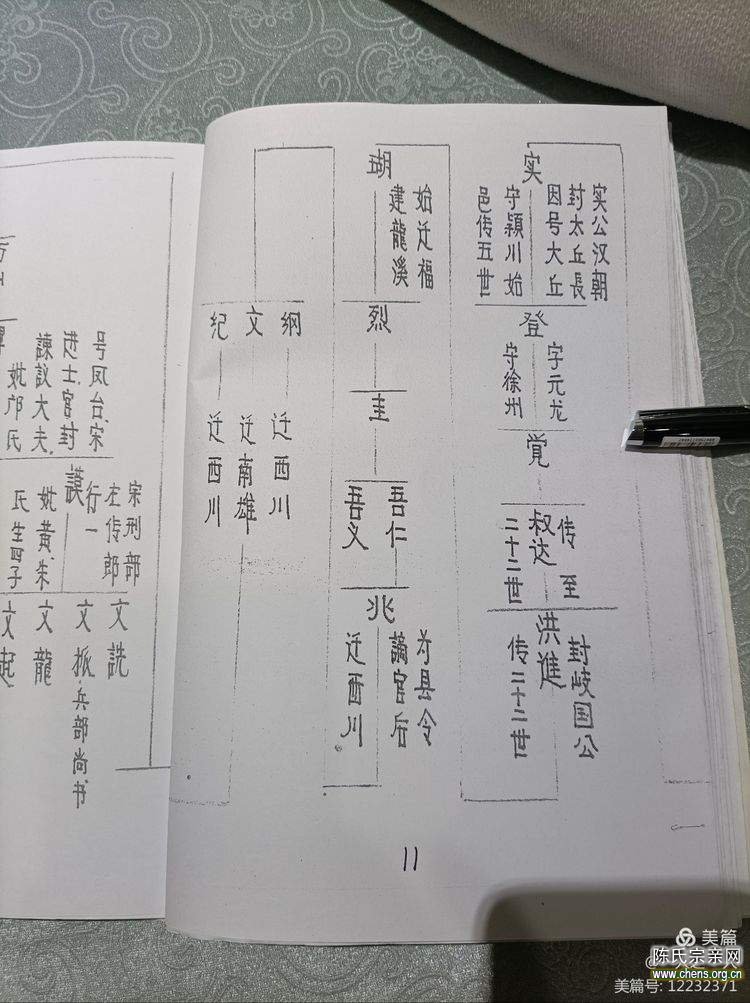 实
实公汉朝
封太丘長
因号大丘
守颖川始
邑传五世
登
字元龙
守徐州
覚
叔达
传至
二十二世
洪進
封歧国公
传二十二世
瑚
始迁福
建龍溪
烈
圭
吾仁
吾义
兆
为县令
谪官后
迁西川
纲
迁西川
文
迁南雄
纪
迁西川
11
号凤台宋
进士官封
諫議大夫
妣邝氏
謨
行一
宋刑部
左侍郎
妣黄朱
氏生四子
文詵
文振兵部尚书
文龍
文起
美篇
陈氏宗亲网
www.chens.org.cn
美篇号: 12232371